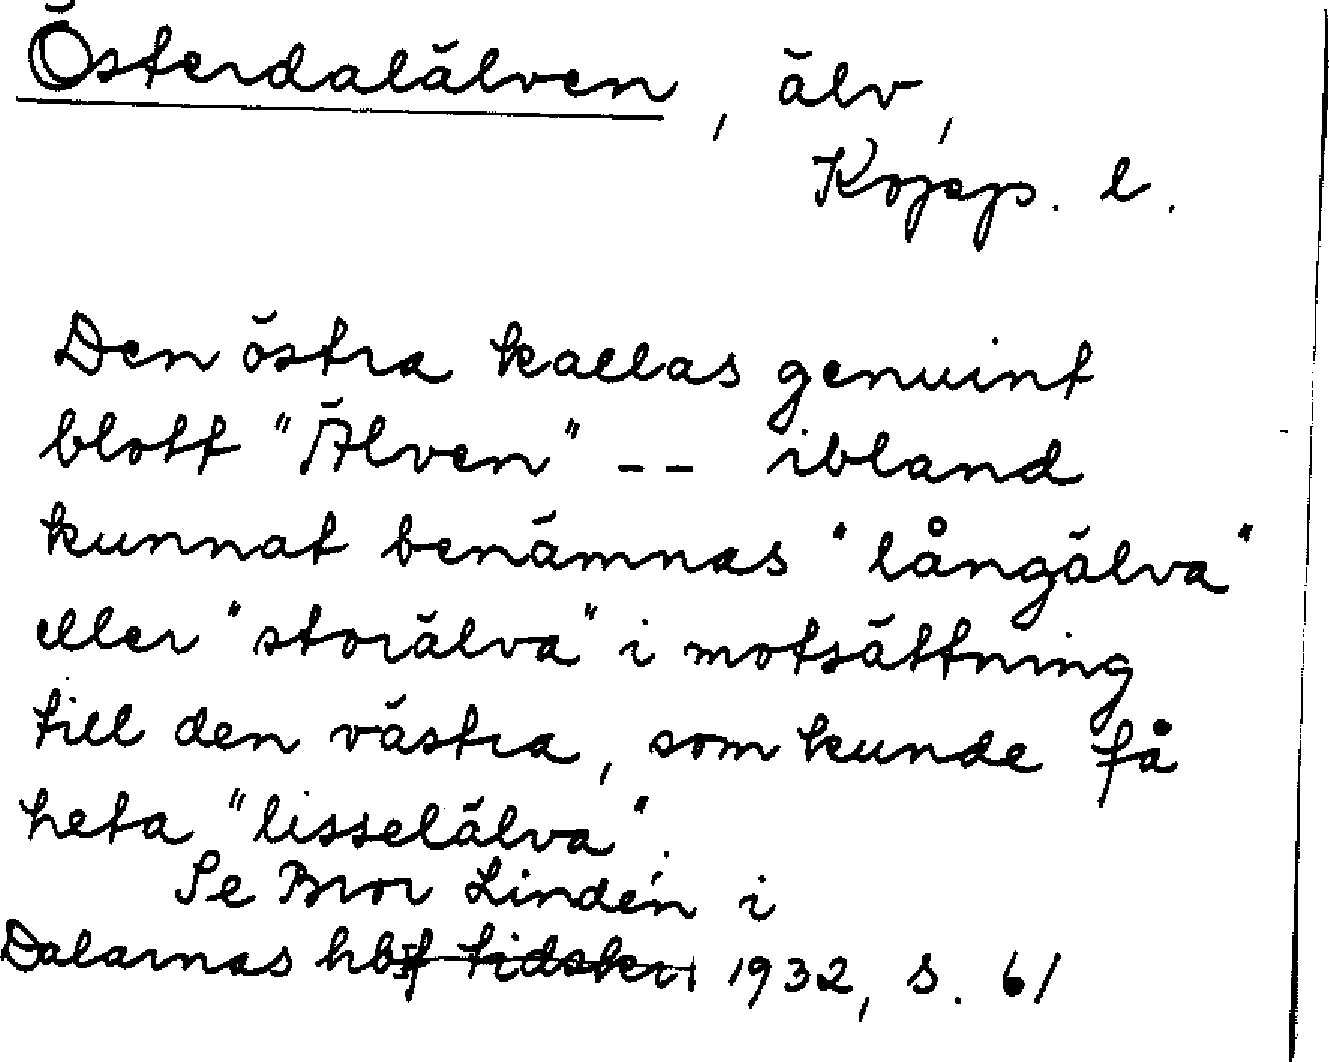 Österdalälven, älv,
Kopp. l.
Den östra kallas genuint
blott "Älven" -- ibland
kunnat benämnas "långälva"
eller "storälva" i motsättning
till den västra, som kunde få
heta "lisselälva".
Se Bror Lindén i
Dalarnas hbf tidskr. 1932, s. 61